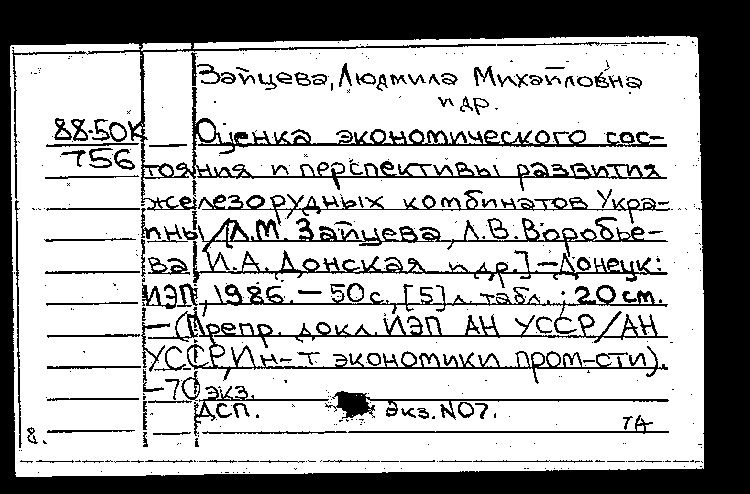 Зайцева, Людмила Михайловна
и др.
88-50К
756
Оценка экономического сос-
тояния и перспективы развития
железорудных комбинатов Укра-
ины /[Л.М. Зайцева, Л.В. Воробье-
ва, И.А. Донская и др.] – Донецк:
ИЭП, 1986. – 50 с., [5] л. табл.; 20 см.
– (Препр. докл. ИЭП АН УССР/АН
УССР, Ин-т экономики пром-сти).
– 70 экз.
ДСП. Экз. №07.
8.